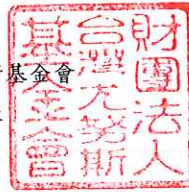 基金會
財團法人
台灣尤努斯
基金會